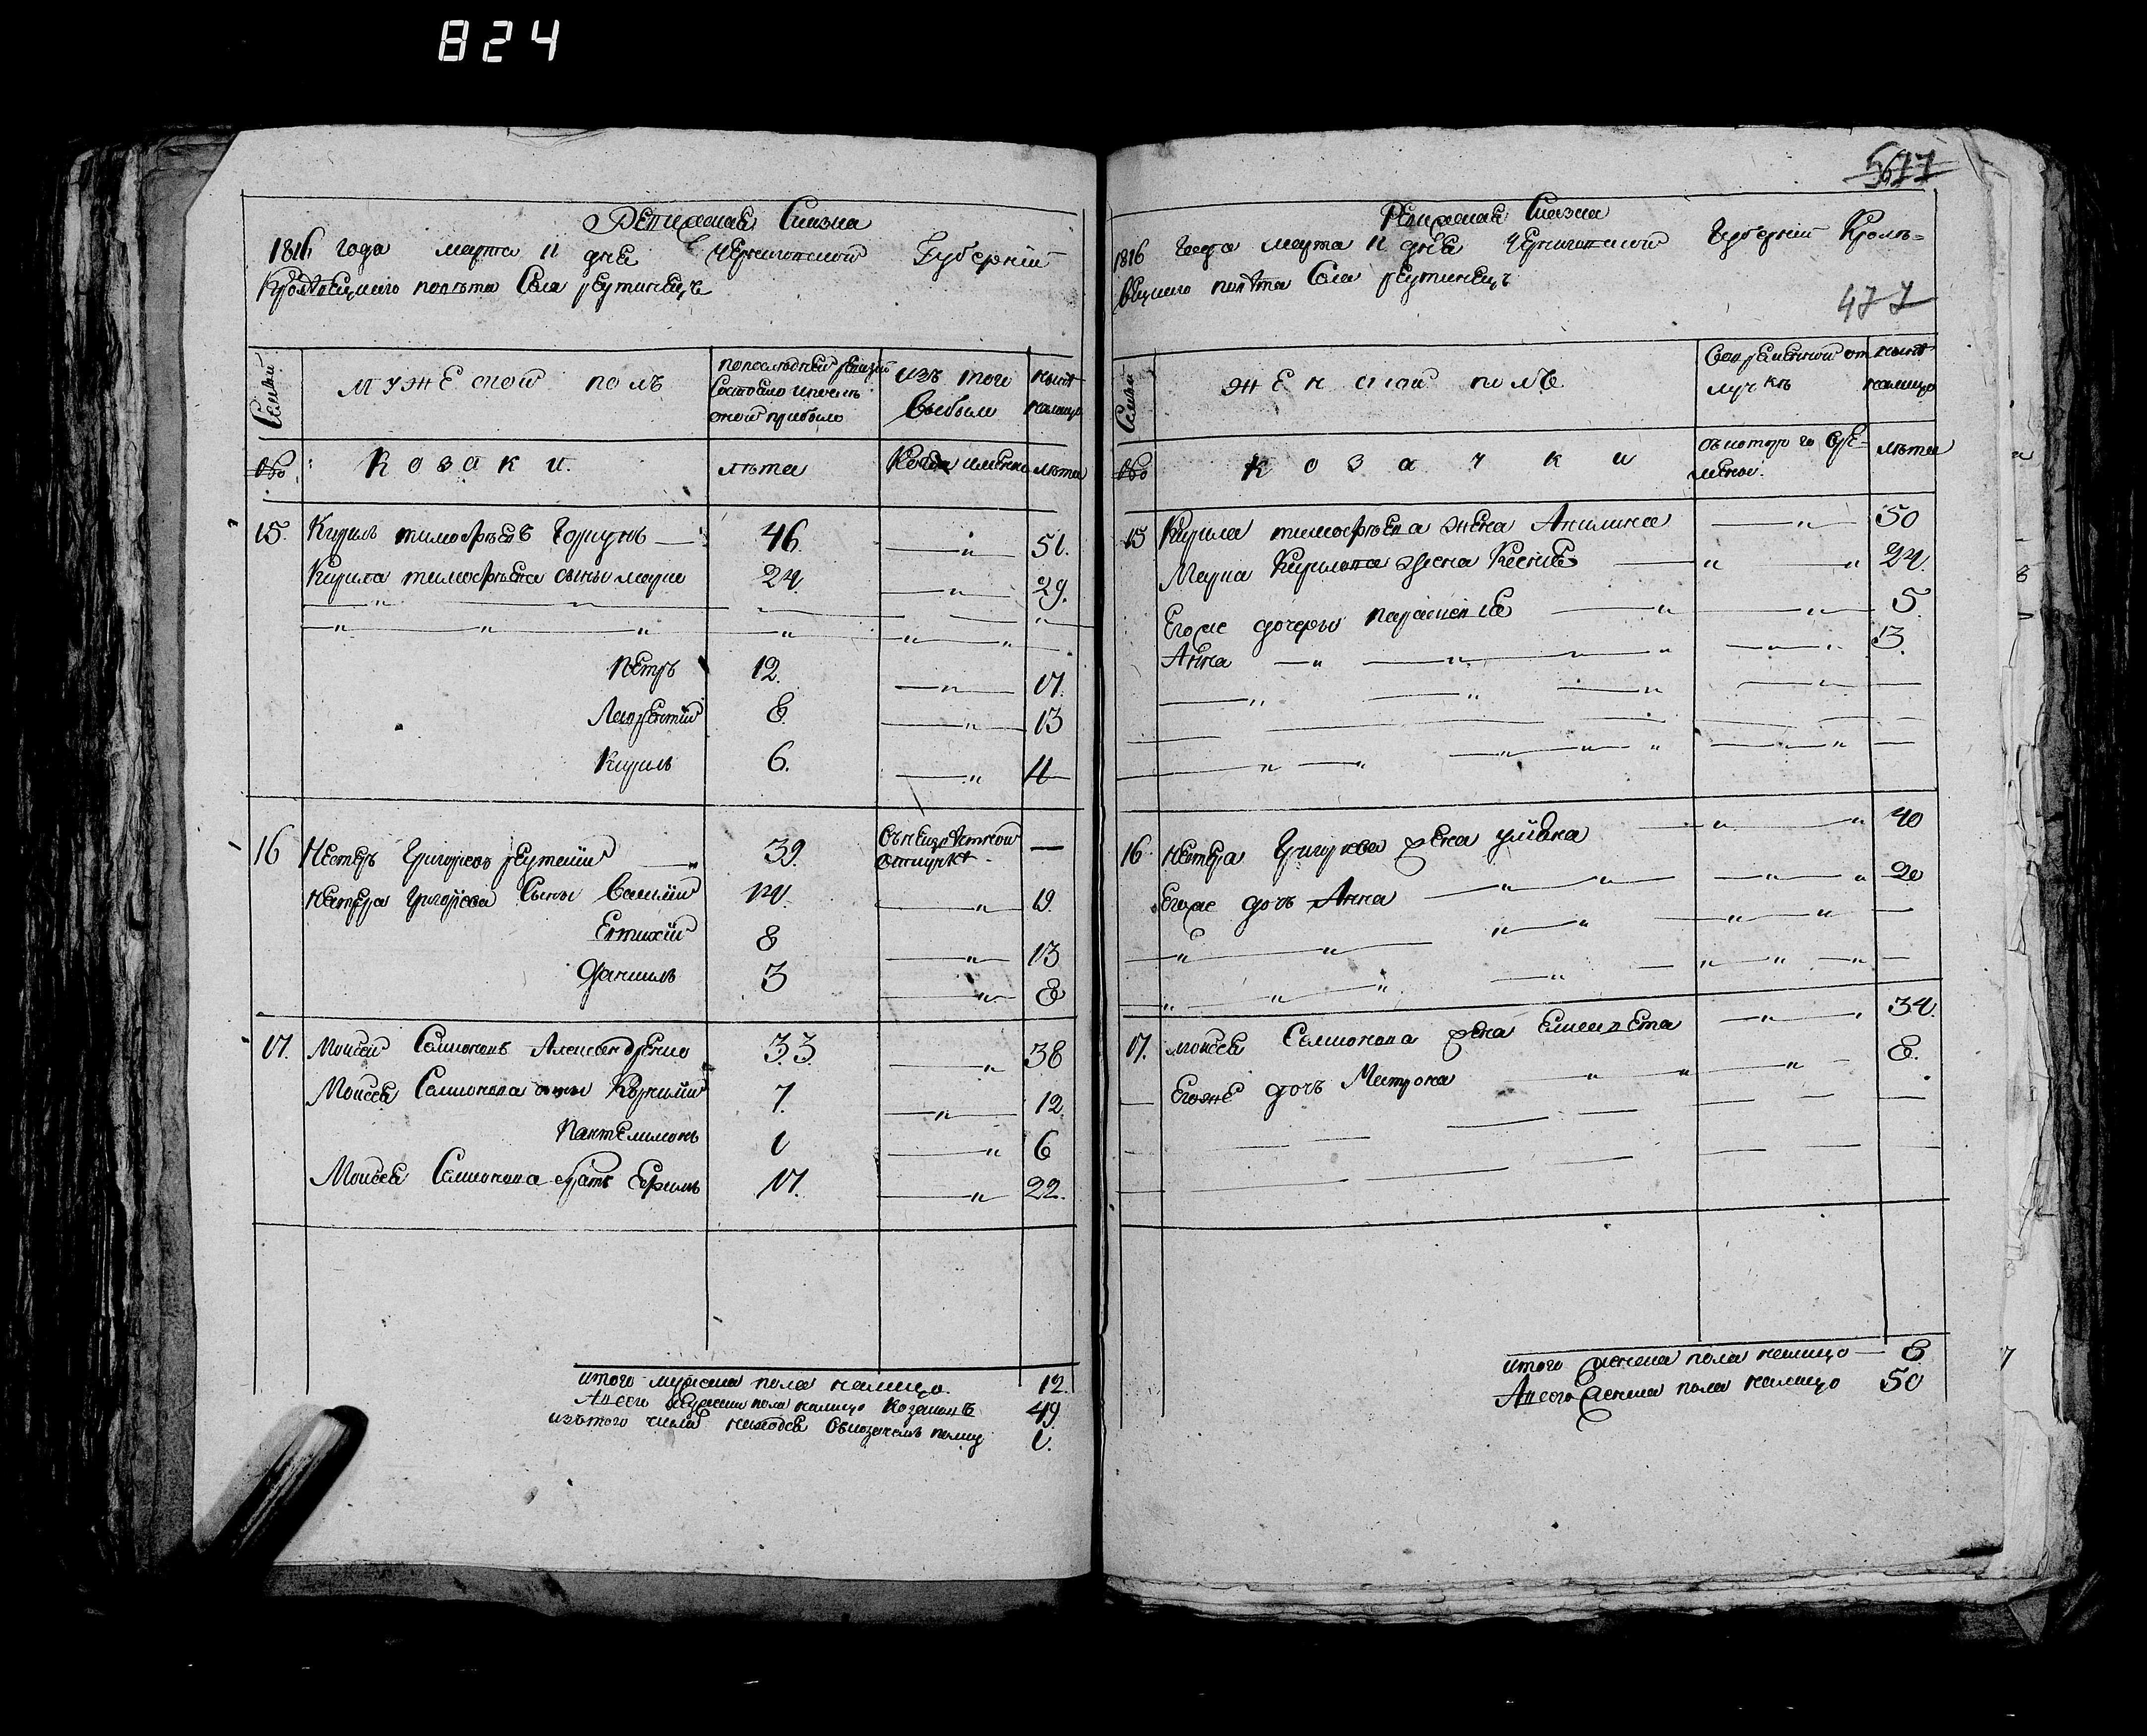 824
Ревизская Сказка
1816 года марта 11 дня Черниговской Губернии
Кролевецкого повета Села реутинець
Семьи
мужеской поль
по последней ревизии
Состояло и после
оной прибыло
изъ того
Выбыло
ныне
налицо
Козаки
лѣта
Когда именно
лѣта
15. Кирилъ тимофѣевъ Горкунъ 46. 51.
Кирила тимофѣева сыны марко 24 29.
Петръ 12. 17.
Лаврентий 8. 13
Кирилъ 6. 11
16 Нестеръ Григорьевъ реутский 39.
отлучкѣ
Нестера Григорьева Сыны Василий 14. 19.
Евтихий 8 13
Данило 3 8
17. Моисей Самионовъ Александренко 33 38
Моисея Самионова сыны Корнилий 7. 12.
Пантелимонъ 1 6
Моисея Самионова братъ Ефимъ 17. 22.
итого мужеска пола налицо. 12.
А всего мужеска пола налицо Козаковъ 49.
изъ того числа 1.
577
Ревизская Сказка
1816 Года марта 11 дня Черниговской Губернии Кроле=
вецкого повѣта Села реутинець
477
Семьи
женской поль
Во временной от
лучкѣ
ныне
налицо
козачки
съ которого вре=
мени.
лѣта
15 Кирила тимофѣева жена Акилина 50
Марка Кирилова жена Ксения 24.
Егоже дочери параскевия 5.
Анна 3.
16. Нестера Григорьева жена улияна 40
Егоже дочь Анна 20
17. моисея Самионова жена Елисавета 34.
Егоже дочь Матрона 8.
итого женска пола налицо 8
А всего женска пола налицо 50